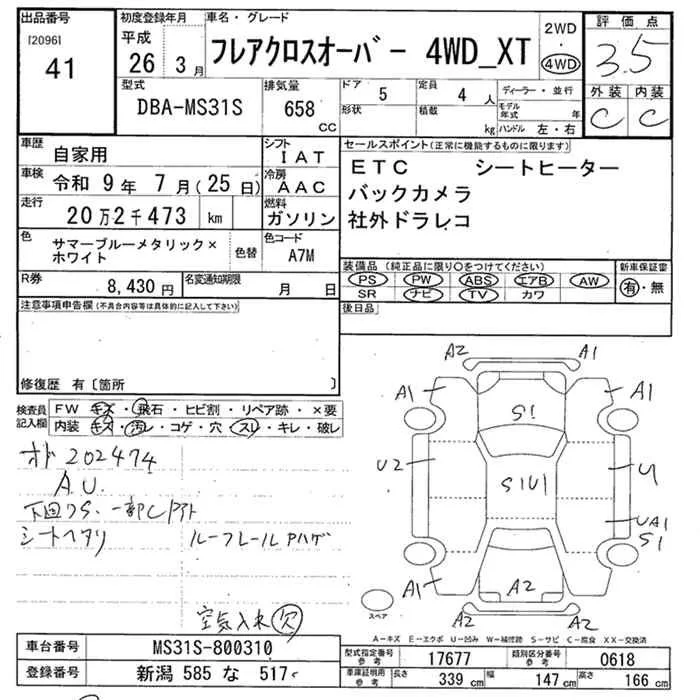 出品番号 初度登録年月 車名・グレード 2WD 評価点
[2096] 平成
41 26年 3月 フレアクロスオーバー 4WD_XT ・ 4WD 3.5
型式 排気量 ドア 5 定員 4人 ディーラー・並行 外装 内装
DBA-MS31S 658 CC 形状 積載 kg モデル年式 年 C C
ハンドル 左・右
車歴 自家用 シフト IAT セールスポイント(正常に機能するものに限ります)
車検 令和 9年 7月(25日) 冷房 AAC ETC シートヒーター
走行 20万2千473 km 燃料 ガソリン バックカメラ
社外ドラレコ
色 サマーブルーメタリック×ホワイト 色替 色コード A7M
装備品(純正品に限り○をつけてください) 新車保証書
R券 8,430円 名変通知期限 月 日 PS PW ABS エアB AW 有・無
SR ナビ TV カワ
注意事項申告欄(不具合内容等は具体的に記入して下さい) 後日品
修復歴 有〔箇所 〕
検査員記入欄 FW キズ・飛石・ヒビ割・リペア跡・×要
内装 キズ・汚レ・コゲ・穴・スレ・キレ・破レ
オド 202474
A.U.
下回りS、一部Cアト
シートヘタリ ルーフレールPハゲ
空気入れ欠
A2 A1
A1 A1
S1
U2 S1U1 U
UA1
S1
A1 A2
A2
スペア
A-キズ E-エクボ U-凹み W-補修跡 S-サビ C-腐食 XX-交換済
車台番号 MS31S-800310 型式指定番号 参考 17677 類別区分番号 参考 0618
登録番号 新潟 585 な 517 車庫証明用 参考 長さ 339 cm 幅 147 cm 高さ 166 cm